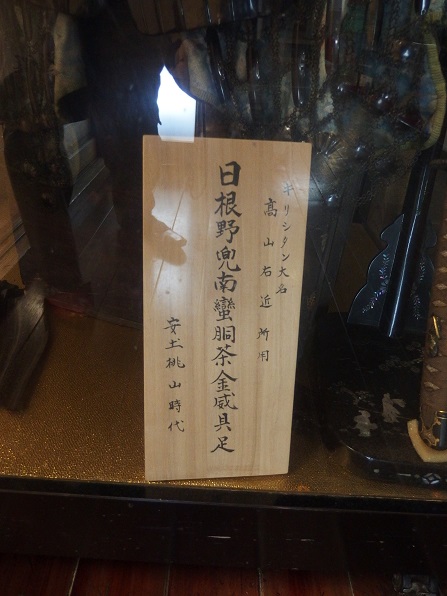 キリシタン大名
髙山右近所用
日根野兜南蠻胴茶金威具足
安土桃山時代